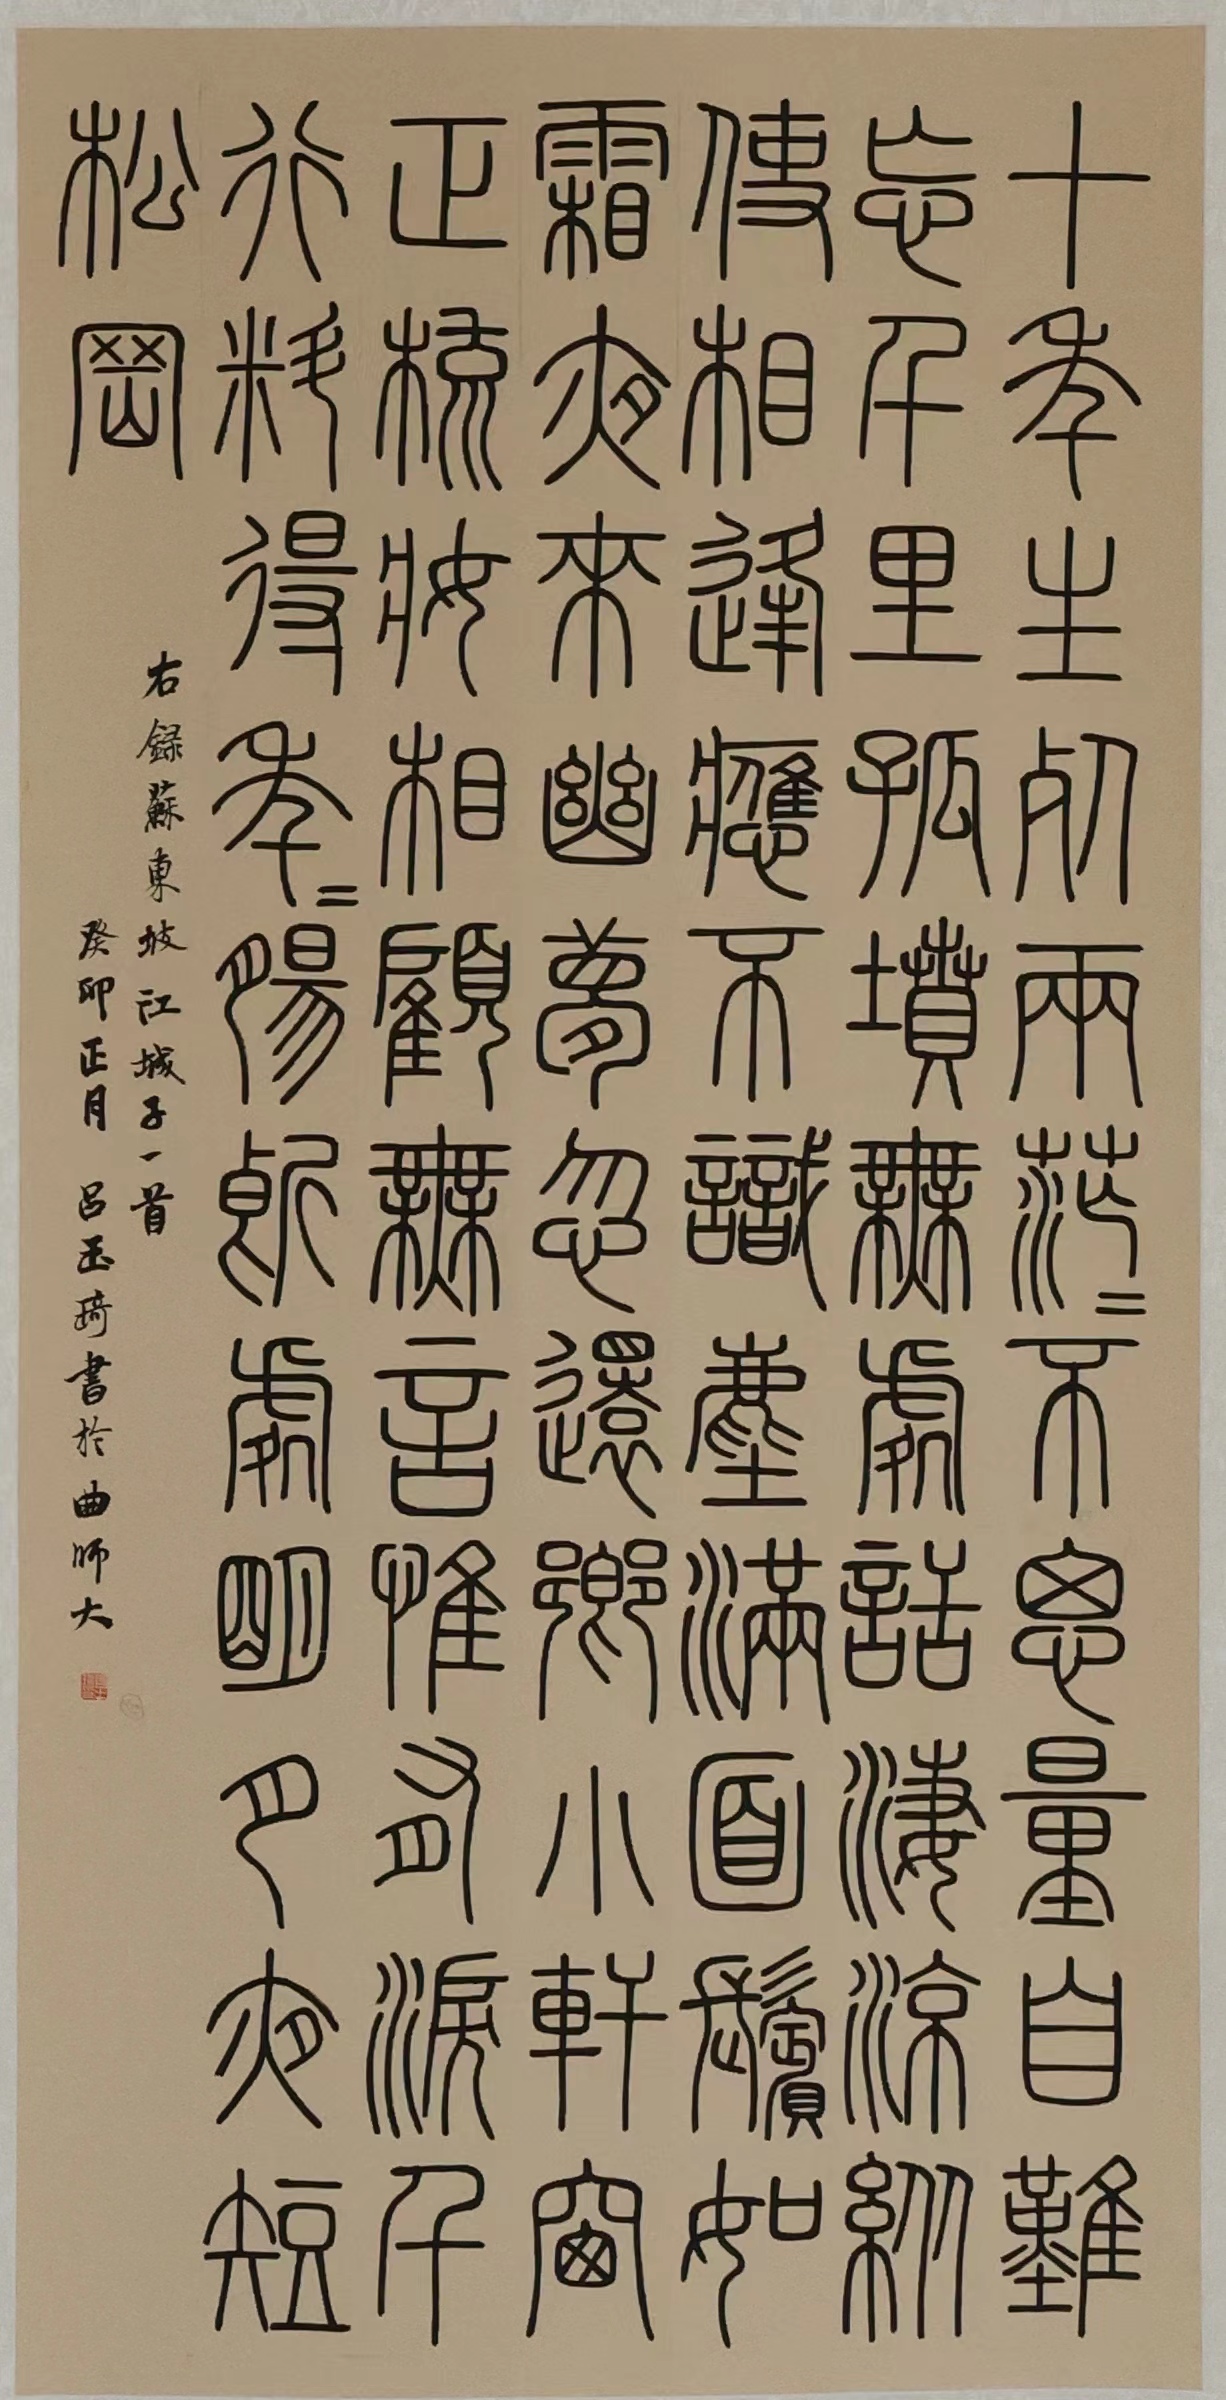 十年生死兩茫〻不思量自難
忘千里孤墳無處話淒涼縱
使相逢應不識塵滿面鬢如
霜夜來幽夢忽還鄉小軒窗
正梳妝相顧無言惟有淚千
行料得年〻腸斷處明月夜短
松岡
右録蘇東坡江城子一首
癸卯正月 呂玉琦書於曲師大